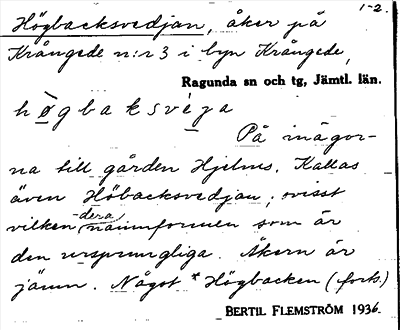 1-2.
Högbacksvedjan, åker på
Krångede n:r 3 i byn Krångede,
Ragunda sn och tg, Jämtl. län.
högbaksvèya
På inägor-
na till gården Hjelms. Kallas
även Höbacksvedjan; ovisst
vilkendera namnformen som är
den ursprungliga. Åkern är
jämn. Något *Högbacken (forts.)
BERTIL FLEMSTRÖM 1936.